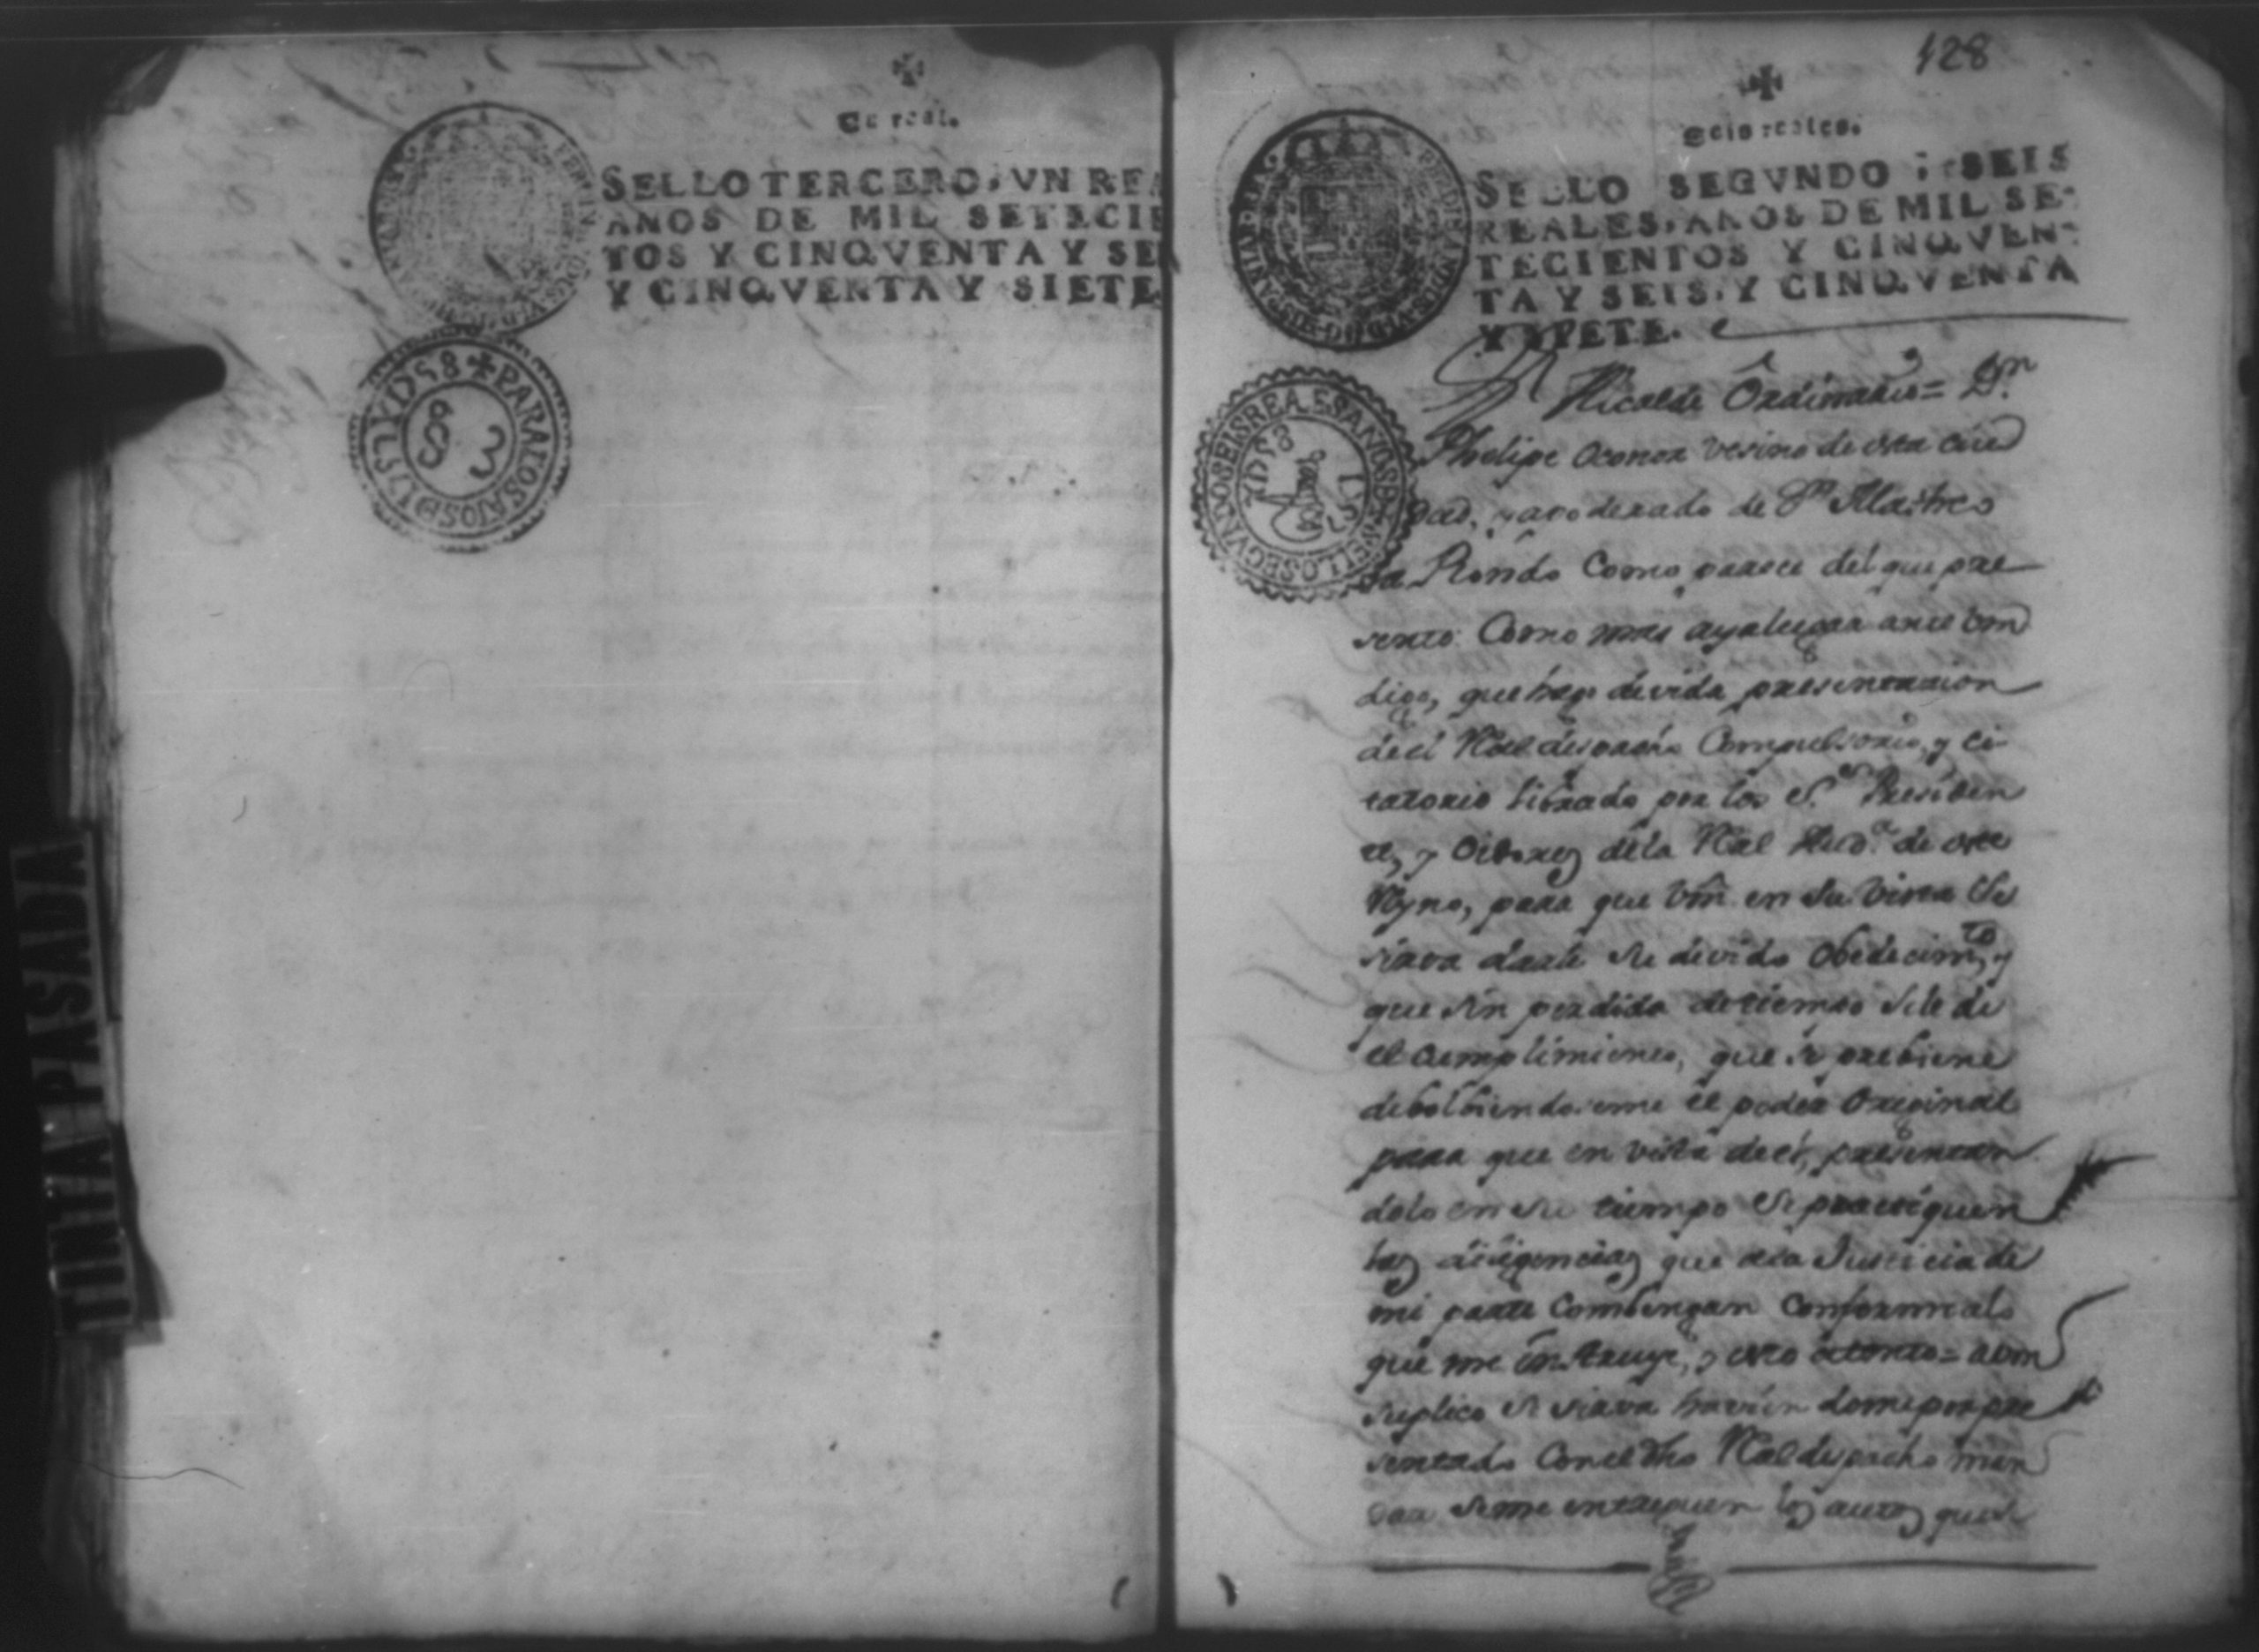 Un real.
SELLO TERCERO, VN REA
AÑOS DE MIL SETECIE
TOS Y CINQVENTA Y SE
Y CINQVENTA Y SIETE
PARA LOS AÑOS D 57 Y D 58
S 3
TINTA PASADA
128
Seis reales.
SELLO SEGVNDO, SEIS
REALES, AÑOS DE MIL SE-
TECIENTOS Y CINQVEN-
TA Y SEIS, Y CINQVENTA
Y SIETE.
SELLO SEGVNDO SEIS REALES AÑOS D
57 YD58
Alcalde Ordinario = Dn
Phelipe Oconor vesino de esta ciud
dad, y apoderado de Dn Mastre
de Rondo Como parece del que pre
sento Como mas aya lugar ante vm
digo, que hago devida presentacion
de el Rl despacho Compulsorio, y ci-
tatorio librado por los S.es Presiden
te, y Oidores de la Rl Aud.a de este
Ryno, para que Vm en su vista Se
sirva darle su devido Obedecimto, y
que sin perdida de tiempo Se le de
el Cumplimiento, que se prebiene
debolbiendoseme el poder Original
para que en vista de el, presentan
dolo en su tiempo Se practiquen
las diligencias que a la Justicia de
mi parte Combengan Conforme a lo
que me instruye, y esto atento = a vm
suplico se sirva haviendome por pre
sentado Con el dho Rl despacho man
dar Se me entreguen los autos que se